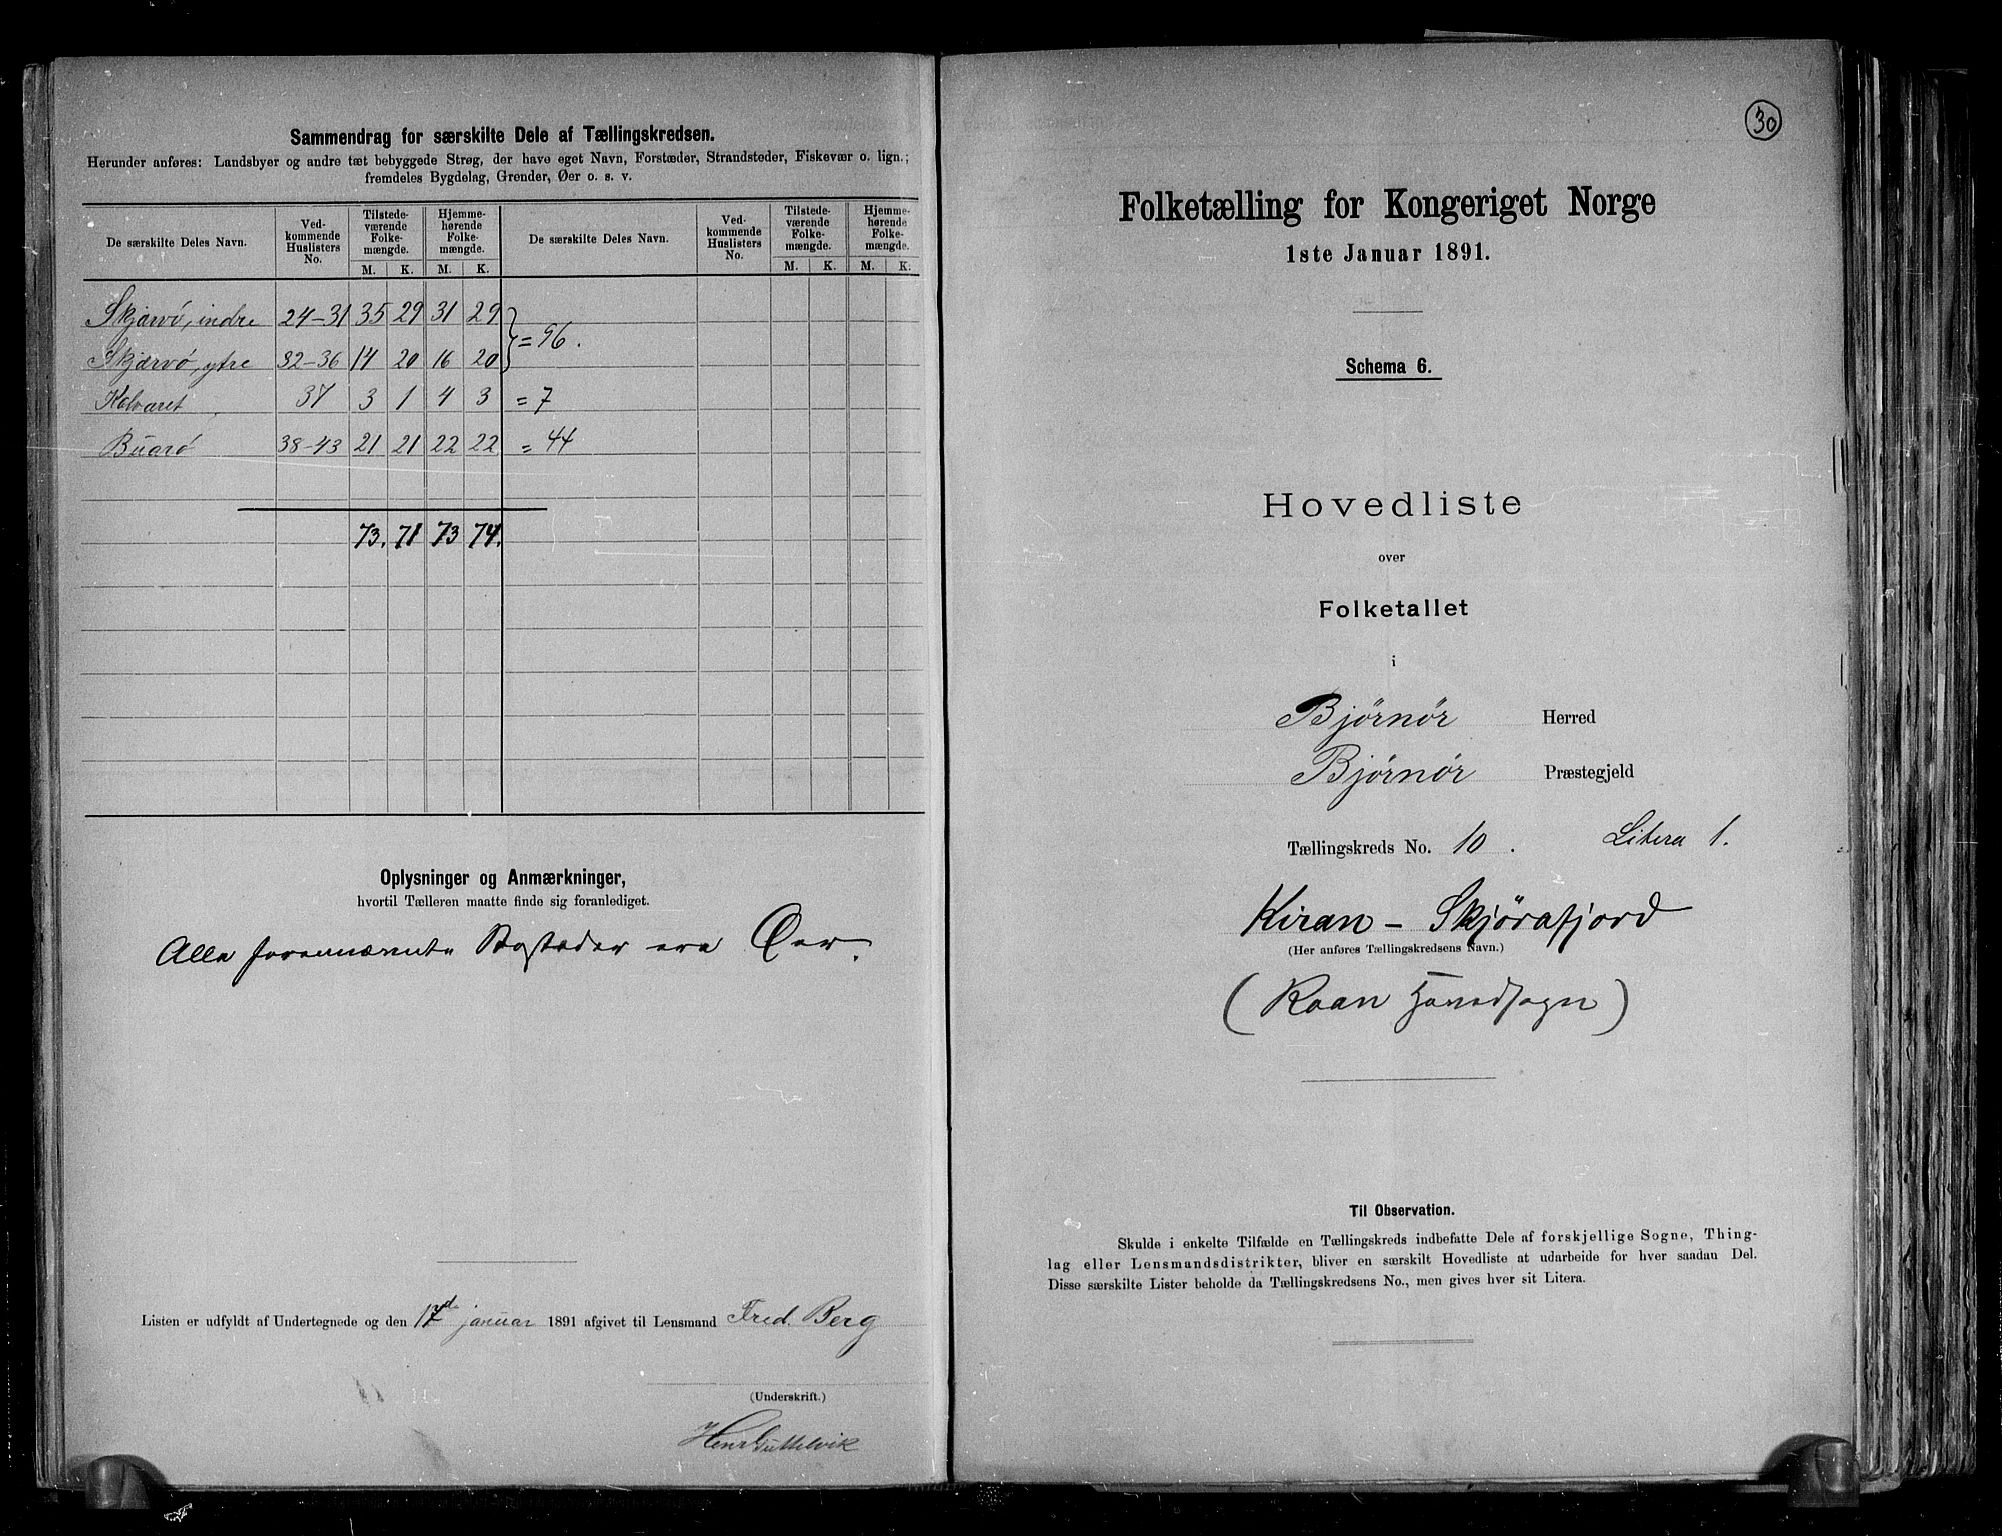 Sammendrag for særskilte Dele af Tællingskredsen.
Herunder anføres: Landsbyer og andre tæt bebyggede Strøg, der have eget Navn, Forstæder, Strandsteder, Fiskevær o. lign.;
fremdeles Bygdelag, Grender, Øer o. s. v.
De særskilte Deles Navn. Ved-kommende Huslisters No. Tilstede-værende Folke-mængde. Hjemme-hørende Folke-mængde. De særskilte Deles Navn. Ved-kommende Huslisters No. Tilstede-værende Folke-mængde. Hjemme-hørende Folke-mængde.
M. K. M. K. M. K. M. K.
Skjærvø, indre 24-31 35 29 31 29
= 96.
Skjærvø, ytre 32-36 14 20 16 20
Kalvaret 37 3 1 4 3 = 7
Buarø 38-43 21 21 22 22 = 44
73. 71 73 74.
Oplysninger og Anmærkninger,
hvortil Tælleren maatte finde sig foranlediget.
Alle forannævnte Bosteder ere Øer.
Listen er udfyldt af Undertegnede og den 17de januar 1891 afgivet til Lensmand Fred. Berg
(Underskrift.)
30
Folketælling for Kongeriget Norge
1ste Januar 1891.
Schema 6.
Hovedliste
over
Folketallet
i
Bjørnør Herred
Bjørnør Præstegjeld
Tællingskreds No. 10. Litera 1.
Kiran - Skjørafjord
(Her anføres Tællingskredsens Navn.)
(Roan Hovedsogn)
Til Observation.
Skulde i enkelte Tilfælde en Tællingskreds indbefatte Dele af forskjellige Sogne, Thing-
lag eller Lensmandsdistrikter, bliver en særskilt Hovedliste at udarbeide for hver saadan Del.
Disse særskilte Lister beholde da Tællingskredsens No., men gives hver sit Litera.